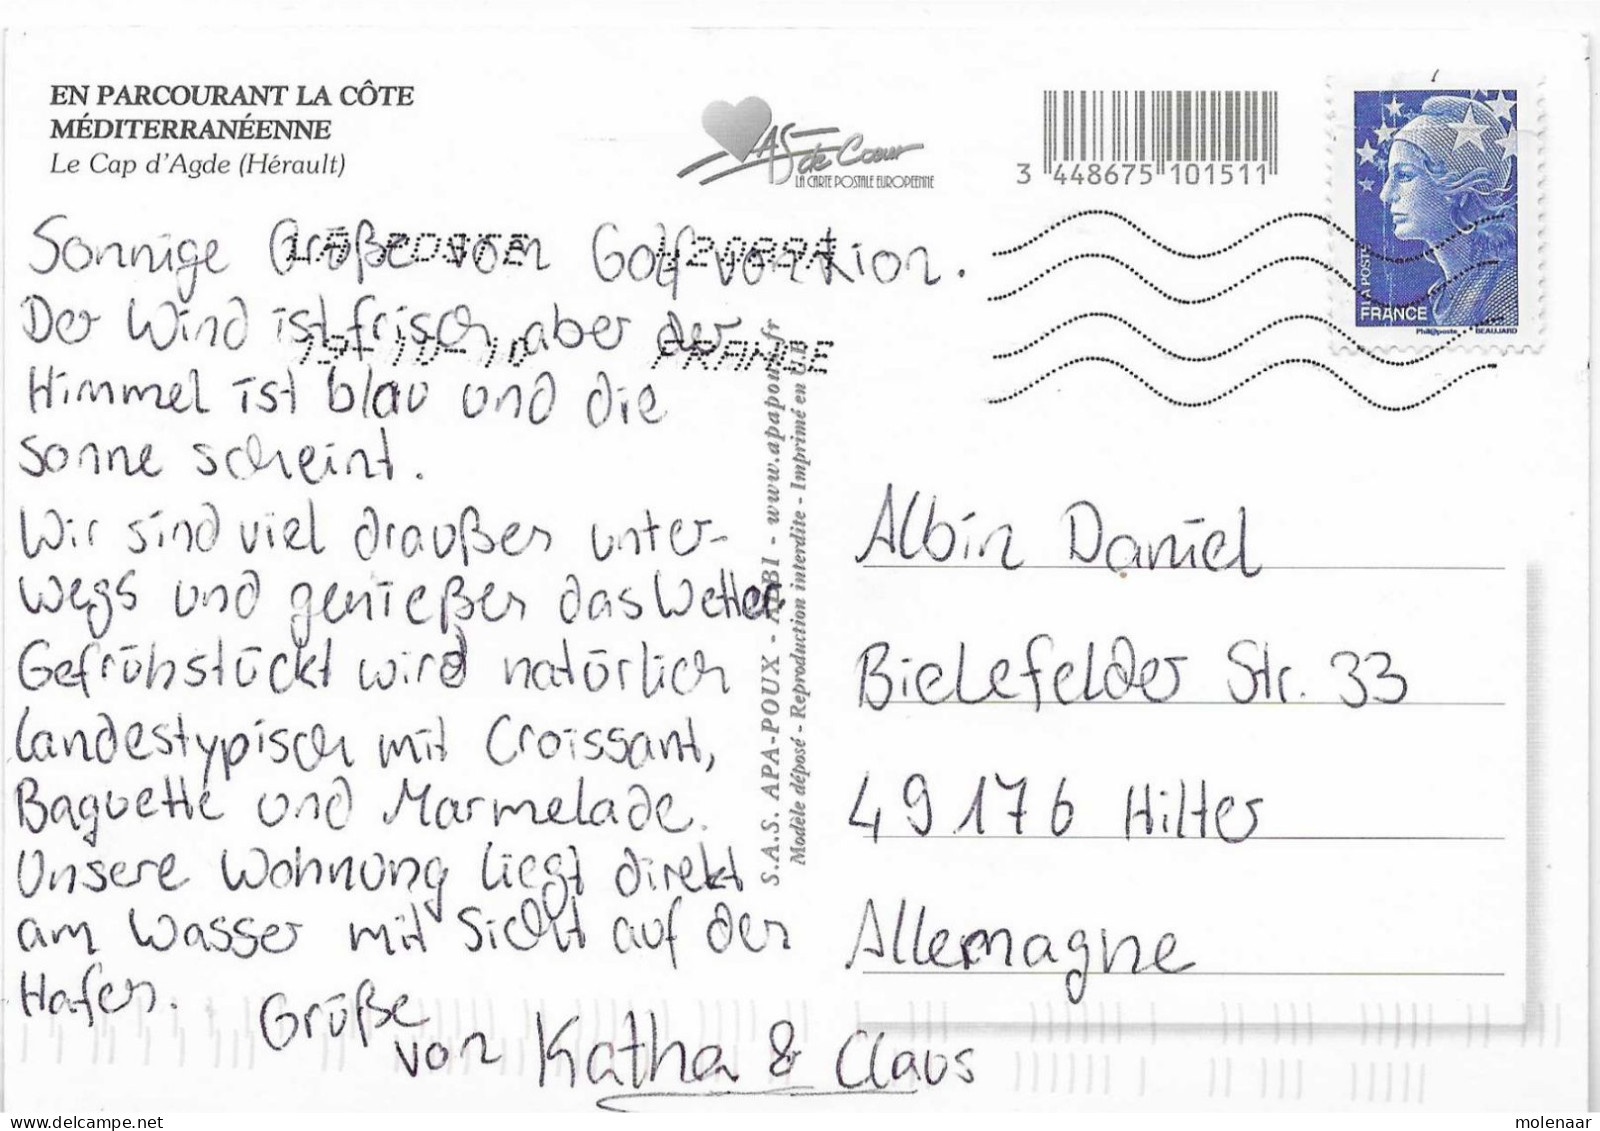 EN PARCOURANT LA CÔTE
MÉDITERRANÉENNE
Le Cap d'Agde (Hérault)
AS de Coeur
LA CARTE POSTALE EUROPEENNE
3 448675 101511
A POSTE
FRANCE
Phil@poste
BEAUJARD
12-10-10 FRANCE
Sonnige Grüße vom Golf von Lion.
Der Wind ist frisch aber der
Himmel ist blau und die
Sonne scheint.
Wir sind viel draußen unter-
wegs und genießen das Wetter
Gefrühstückt wird natürlich
landestypisch mit Croissant,
Baguette und Marmelade.
Unsere Wohnung liegt direkt
am Wasser mit Sicht auf den
Hafen.
Grüße
von Katha & Claus
S.A.S. APA-POUX - ALBI - www.apapoux.fr
Modèle déposé - Reproduction interdite - Imprimé en U.E
Albin Daniel
Bielefelder Str. 33
49176 Hilter
Allemagne
molenaar